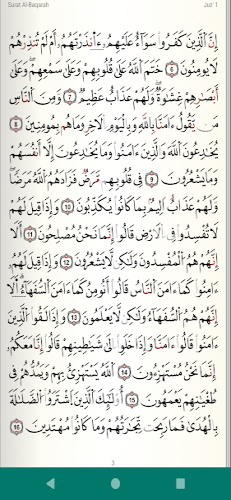 Surat Al-Baqarah
Juz' 1
إِنَّ ٱلَّذِينَ كَفَرُوا۟ سَوَآءٌ عَلَيْهِمُۥ ءَٰا۬نذَرْتَهُمُۥ أَمْ لَمْ تُنذِرْهُمْ
لَا يُومِنُونَ 6 خَتَمَ ٱللَّهُ عَلَىٰ قُلُوبِهِمْ وَعَلَىٰ سَمْعِهِمْ وَعَلَىٰٓ
أَبْصَٰرِهِمْ غِشَٰوَةٌ وَلَهُمْ عَذَابٌ عَظِيمٌ 7 وَمِنَ ٱلنَّاسِ
مَن يَقُولُ ءَامَنَّا بِٱللَّهِ وَبِٱلْيَوْمِ ٱلْأٓخِرِ وَمَا هُم بِمُومِنِينَ 8
يُخَٰدِعُونَ ٱللَّهَ وَٱلَّذِينَ ءَامَنُوا۟ وَمَا يُخَٰدِعُونَ إِلَّآ أَنفُسَهُمْ
وَمَا يَشْعُرُونَ 9 فِى قُلُوبِهِم مَّرَضٌ فَزَادَهُمُ ٱللَّهُ مَرَضًا
وَلَهُمْ عَذَابٌ أَلِيمٌۢ بِمَا كَانُوا۟ يُكَذِّبُونَ 10 وَإِذَا قِيلَ لَهُمْ
لَا تُفْسِدُوا۟ فِى ٱلْأَرْضِ قَالُوٓا۟ إِنَّمَا نَحْنُ مُصْلِحُونَ 11 أَلَآ
إِنَّهُمْ هُمُ ٱلْمُفْسِدُونَ وَلَٰكِن لَّا يَشْعُرُونَ 12 وَإِذَا قِيلَ لَهُمُۥٓ
ءَامِنُوا۟ كَمَآ ءَامَنَ ٱلنَّاسُ قَالُوٓا۟ أَنُومِنُ كَمَآ ءَامَنَ ٱلسُّفَهَآءُ أَلَآ
إِنَّهُمْ هُمُ ٱلسُّفَهَآءُ وَلَٰكِن لَّا يَعْلَمُونَ 13 وَإِذَا لَقُوا۟ ٱلَّذِينَ
ءَامَنُوا۟ قَالُوٓا۟ ءَامَنَّا وَإِذَا خَلَوِا۟ اِلَىٰ شَيَٰطِينِهِمْ قَالُوٓا۟ إِنَّا مَعَكُمُۥٓ
إِنَّمَا نَحْنُ مُسْتَهْزِءُونَ 14 ٱللَّهُ يَسْتَهْزِئُ بِهِمْ وَيَمُدُّهُمْ فِى
طُغْيَٰنِهِمْ يَعْمَهُونَ 15 أُو۟لَٰٓئِكَ ٱلَّذِينَ ٱشْتَرَوُا۟ ٱلضَّلَٰلَةَ
بِٱلْهُدَىٰ فَمَا رَبِحَت تِّجَٰرَتُهُمْ وَمَا كَانُوا۟ مُهْتَدِينَ 16
3